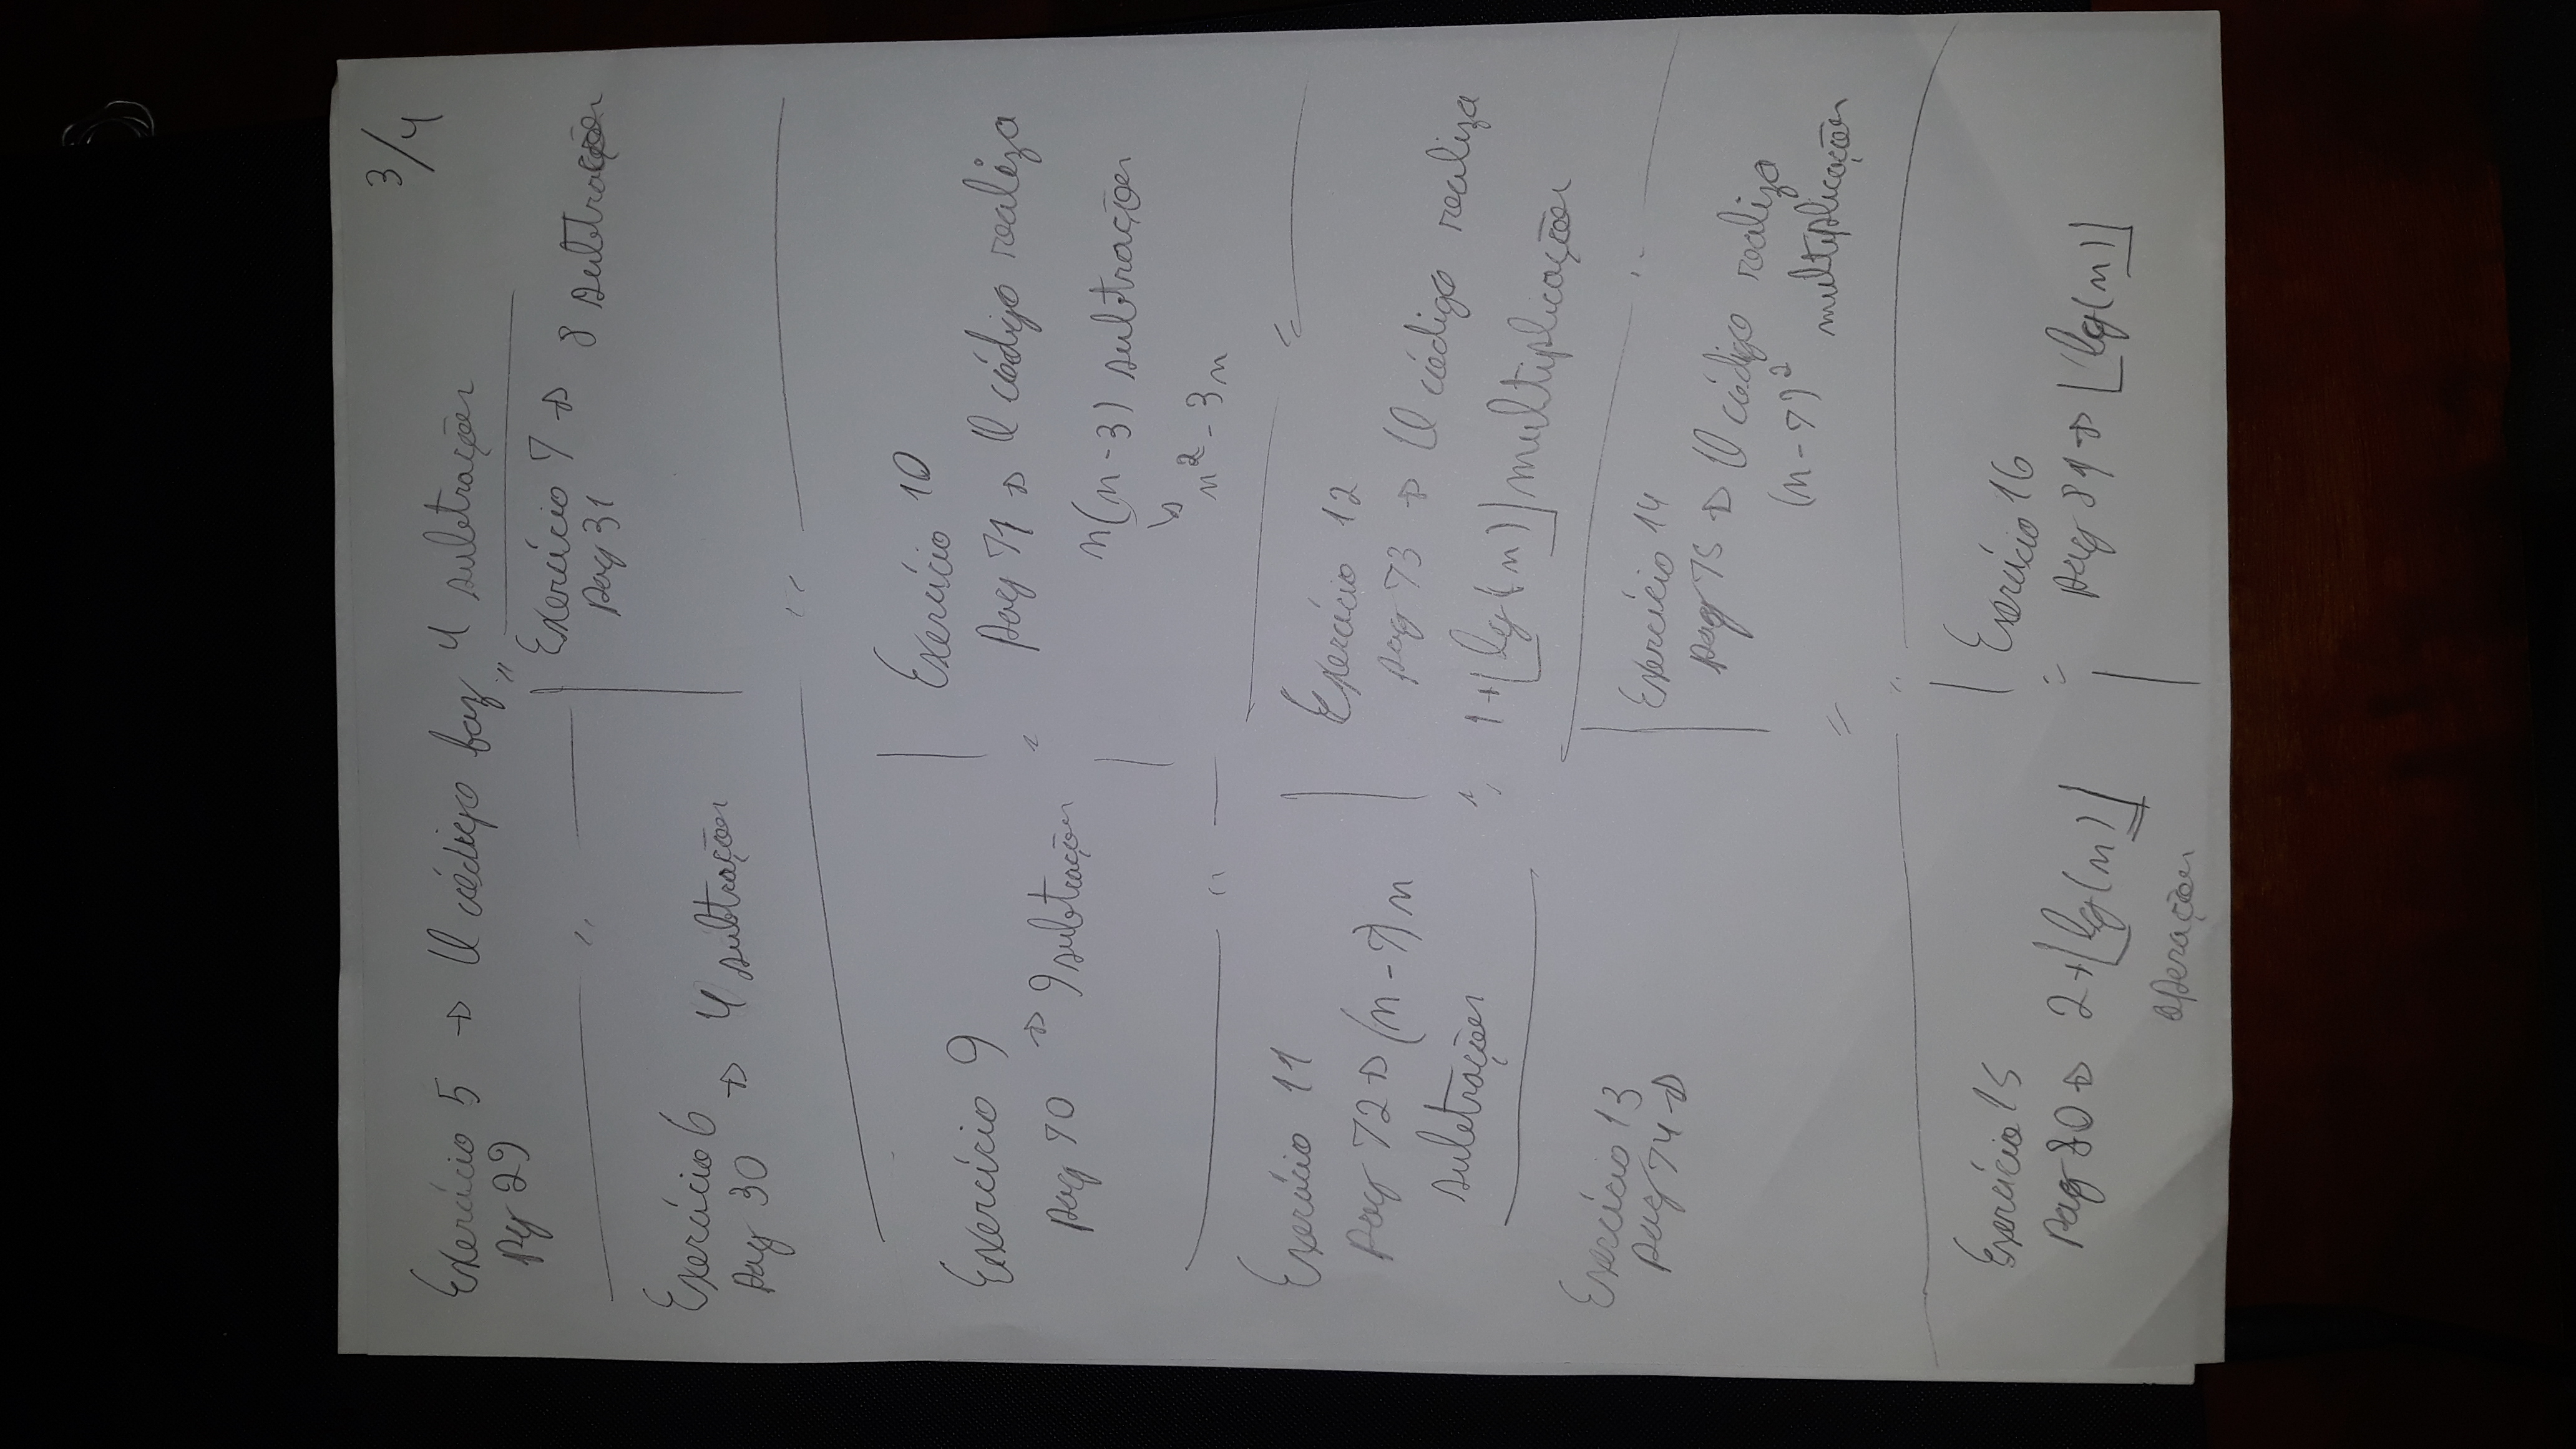 3/4
Exercício 5 → O código faz 4 subtrações
pg 29
Exercício 7 → 8 subtrações
pag 31
Exercício 6
pag 30 → 4 subtrações
Exercício 9
pag 70 → 9 subtrações
Exercício 10
pag 71 → O código realiza
n(n-3) subtrações
↳ n² - 3n
Exercício 11
pag 72 → (n-7)n
subtrações
Exercício 12
pag 73 → O código realiza
1+⌊lg(n)⌋ multiplicações
Exercício 13
pag 74 →
Exercício 14
pag 75 → O código realiza
(n-7)² multiplicações
Exercício 15
pag 80 → 2+⌊lg(n)⌋
operações
Exercício 16
pag 81 → ⌊lg(n)⌋